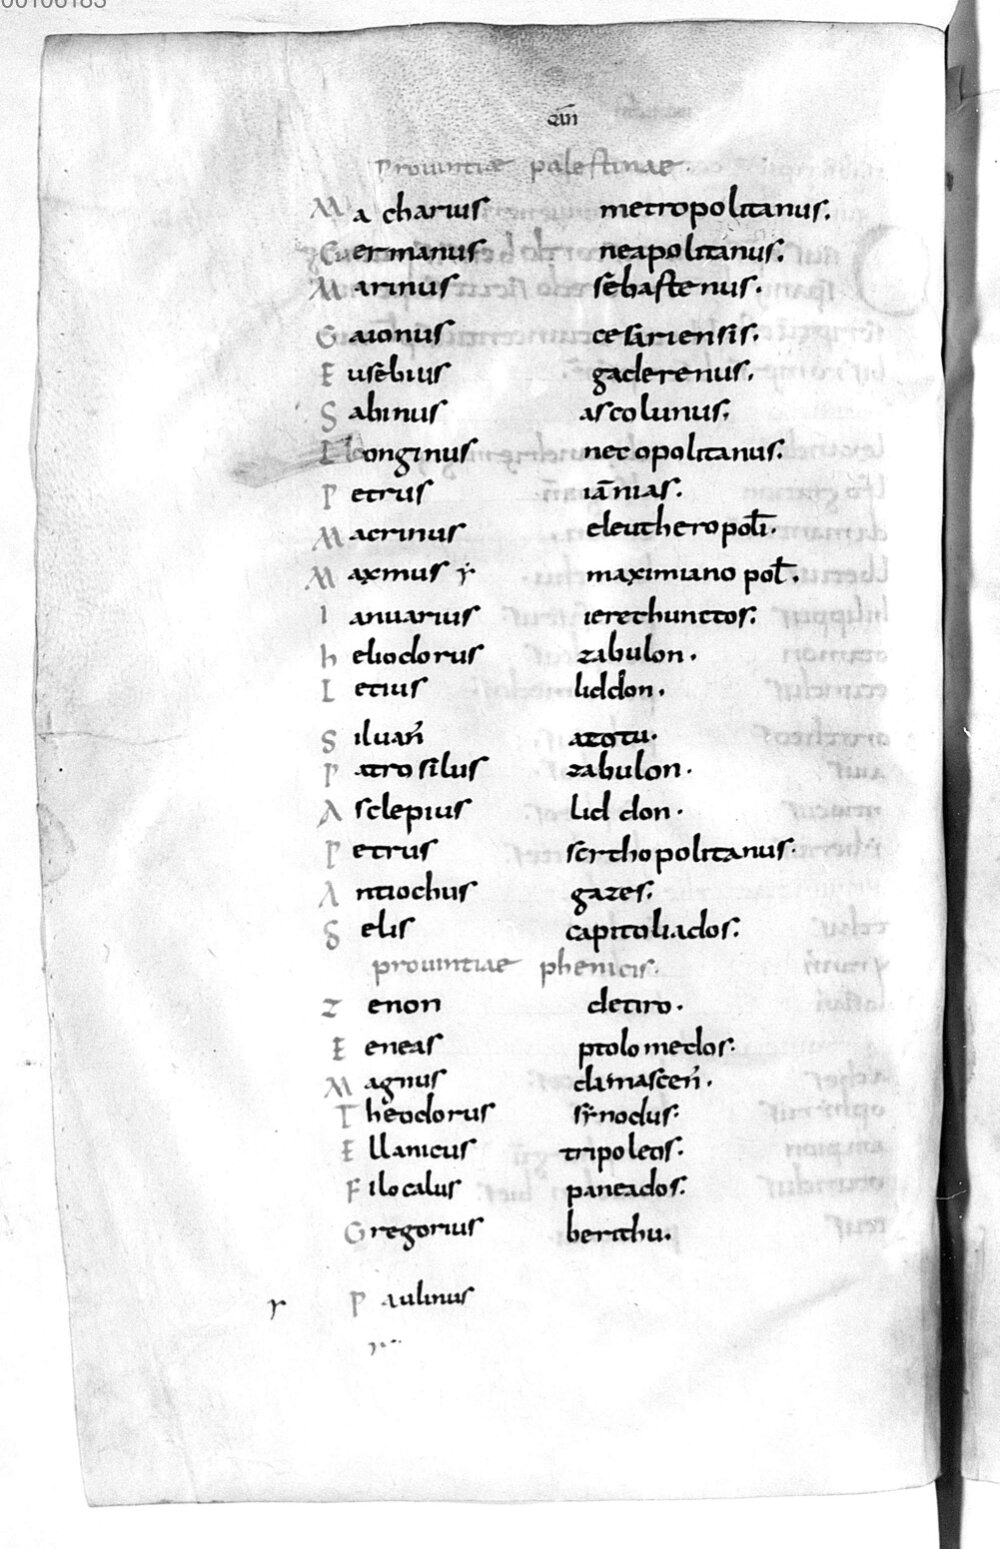 Prouintiae palestinae.
Macharius metropolitanus.
Germanus neapolitanus.
Marinus sebastenus.
Gaionus cesariensis.
Eusebius gaderenus.
Sabinus ascolunus.
Longinus necopolitanus.
Petrus iãnias.
Macrinus eleutheropoli.
Maxmus maximiano pol.
Ianuarius ierechunctos.
heliodorus zabulon.
Letius liddon.
Siluañ azotu.
Patrosilus zabulon.
Asclepius lid don.
Petrus scithopolitanus.
Antiochus gazes.
Selis capitoliados.
prouintiae phenicis.
Zenon detiro.
Eeneas ptolomedos.
Magnus damasceñ.
Theodorus synodus.
Ellanicus tripoleos.
Filocalus paneados.
Gregorius berithu.
Paulinus